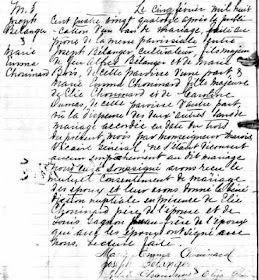 M. 3
Joseph
Belanger
&
Marie
Emma
Chouinard
Le Cinq février mil huit
cent quatre vingt quatorze après la publi-
cation d'un ban de mariage, faite au
prône de la messe paroissiale entre
Joseph Belanger, cultivateur, fils majeur
de feu Alfred Belanger et de Marie
Roris, de cette paroisse d'une part, &
Marie Emma Chouinard fille mineure
de Elie Chouinard et de
Dumas, de cette paroisse d'autre part,
vu la dispense de deux autres bans de
mariage accordée en date du trois
du présent mois, par Monseigneur
Vicaire Général, ne s'étant découvert
aucun empêchement au dit mariage
nous curé soussigné avons reçu le
mutuel consentement de mariage
des époux et leur avons donné la béné-
diction nuptiale en présence de Elie
Chouinard père de l'épouse et de
Louis Gagnon de l'époux
qui avec les époux ont signé avec
nous, lecture faite.
Marie Emma Chouinard
Jos Belanger
Elie Chouinard